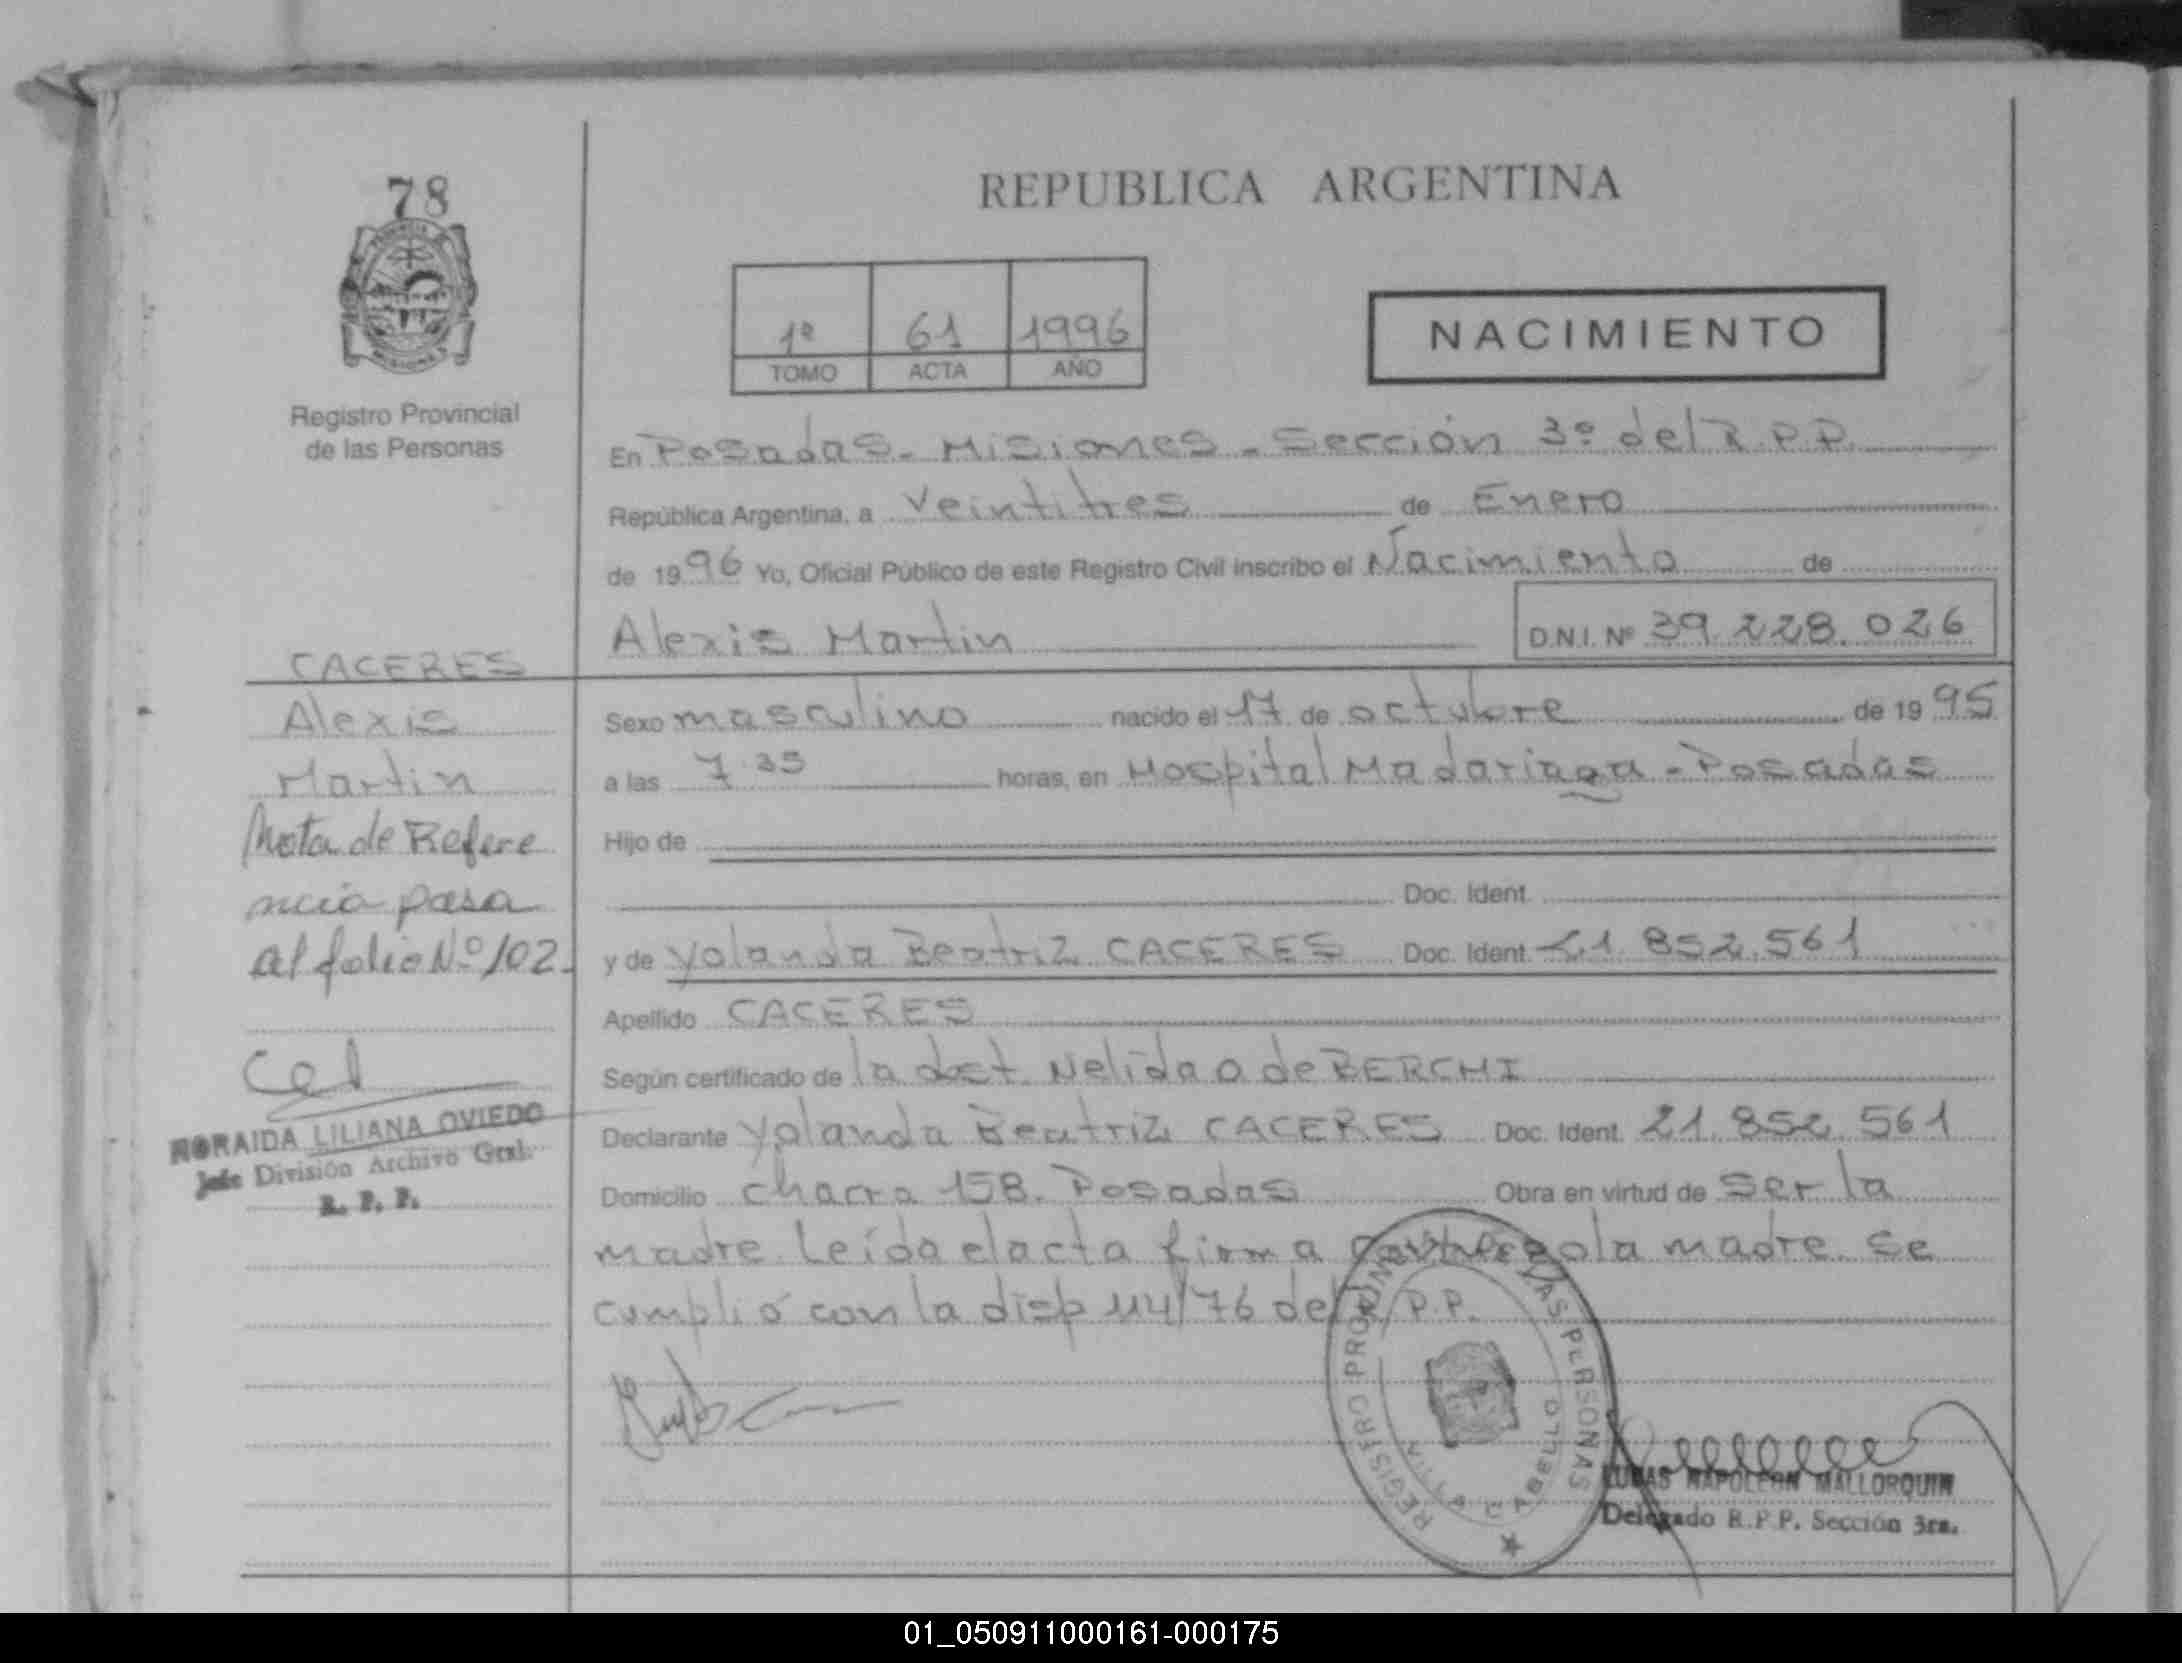 78
REPUBLICA ARGENTINA
1º 61 1996
TOMO ACTA AÑO
NACIMIENTO
Registro Provincial
de las Personas
En Posadas - Misiones - Sección 3º del R.P.P.
República Argentina, a Veintitres de Enero
de 1996 Yo, Oficial Público de este Registro Civil inscribo el Nacimiento de
Alexis Martin D.N.I. Nº 39.228.026
CACERES
Alexis
Martin
Nota de Refere
ncia pasa
al folio Nº 102.
NORAIDA LILIANA OVIEDO
Jefe División Archivo Gral.
R. P. P.
Sexo masculino nacido el 17 de octubre de 1995
a las 7.35 horas, en Hospital Madariaga - Posadas
Hijo de
Doc. Ident.
y de Yolanda Beatriz CACERES Doc. Ident. 21.852.561
Apellido CACERES
Según certificado de la obst. Nelida O de BERCHI
Declarante Yolanda Beatriz CACERES Doc. Ident. 21.852.561
Domicilio chacra 158. Posadas Obra en virtud de ser la
madre. Leída el acta firma la madre se
cumplió con la disp 114/76 del R.P.P.
REGISTRO PROVINCIAL DE LAS PERSONAS
VILLA CABELLO
LUCAS NAPOLEON MALLORQUIN
Delegado R.P.P. Sección 3ra.
01_050911000161-000175